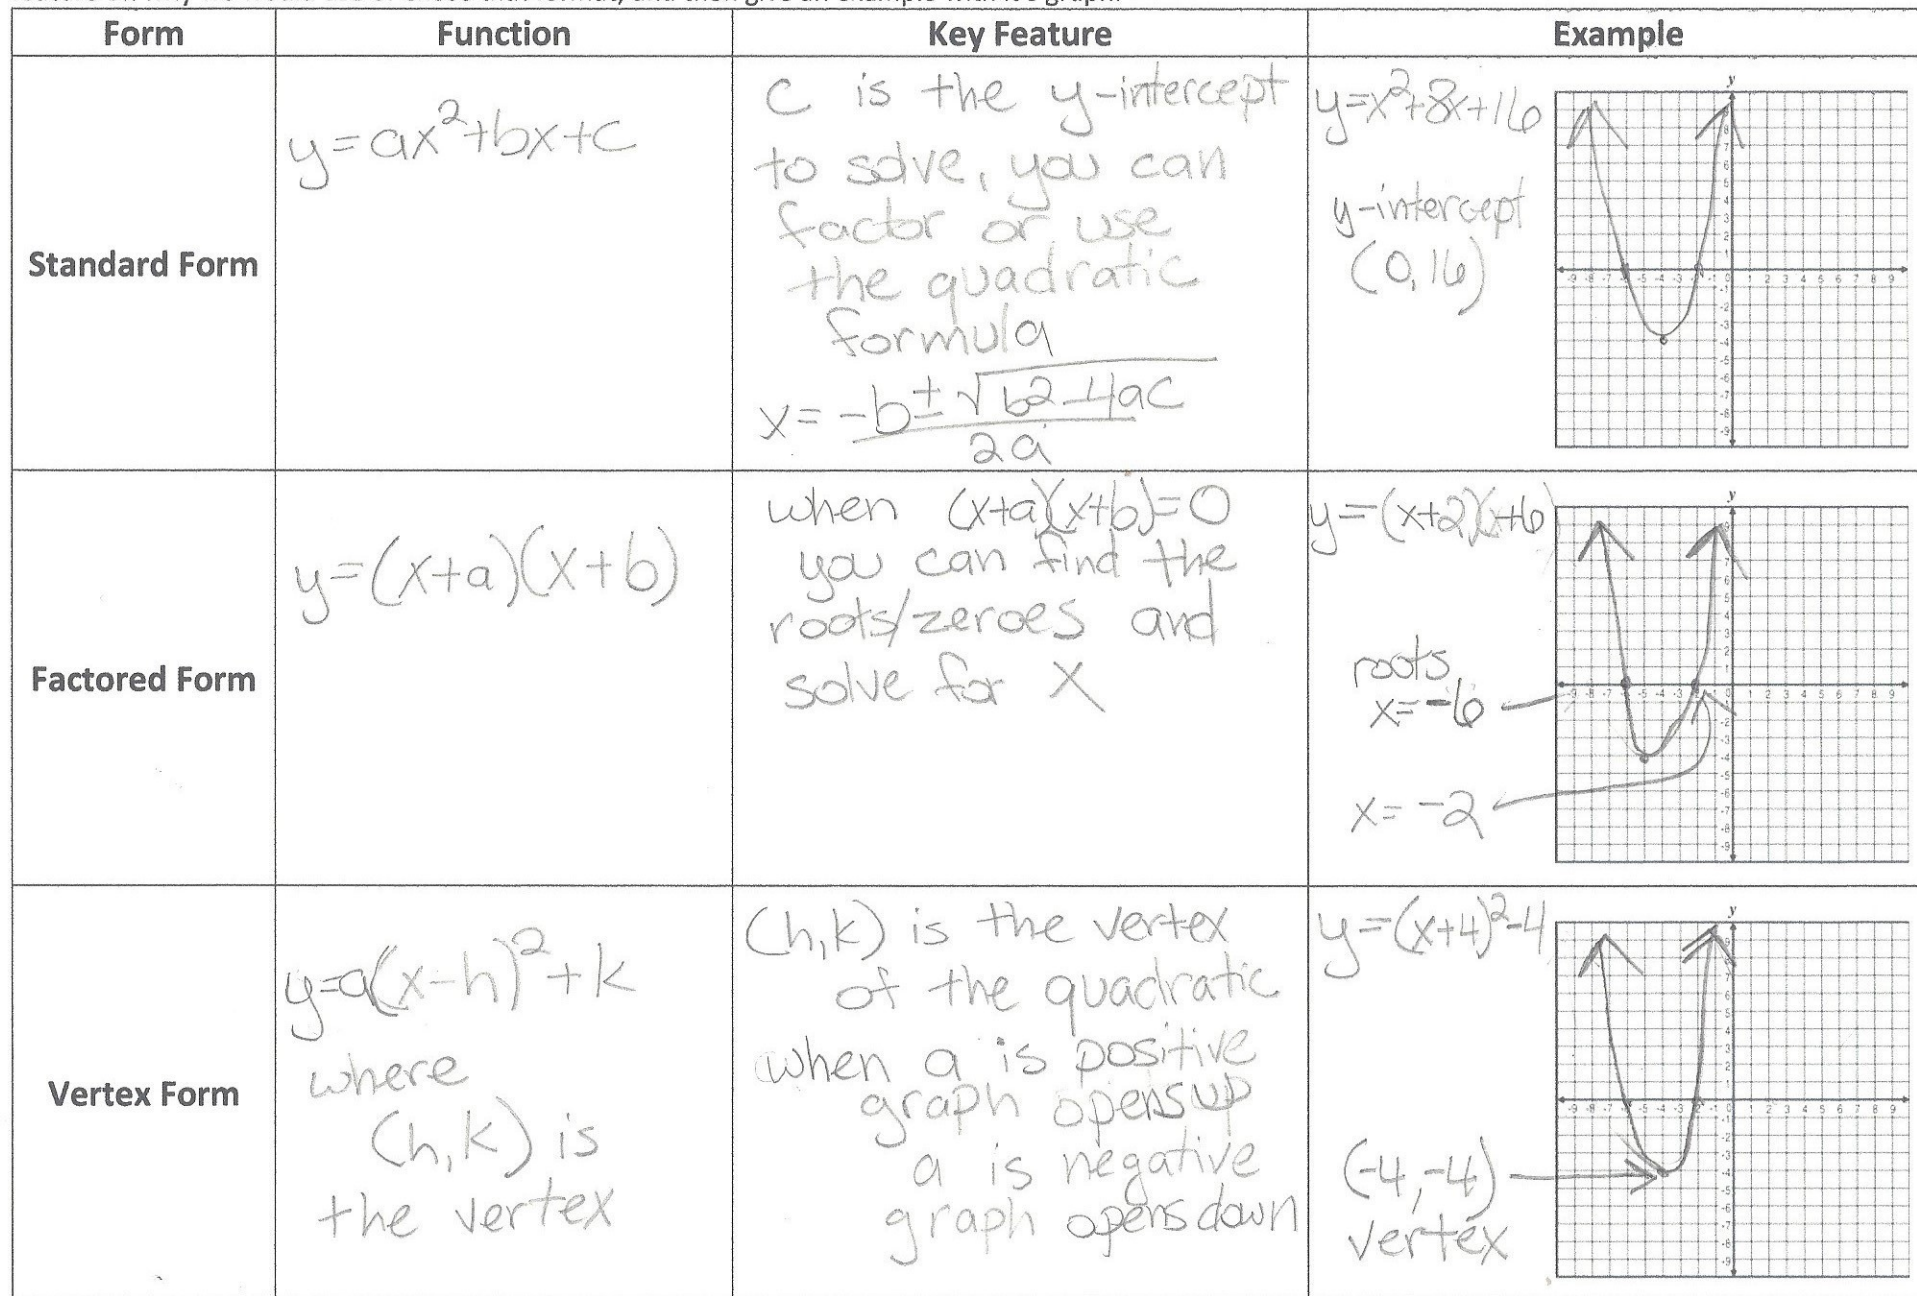 and then give an example with it's graph.
Form Function Key Feature Example
Standard Form
y=ax²+bx+c
c is the y-intercept
to solve, you can
factor or use
the quadratic
formula
x= -b±√b2-4ac
2a
y=x²+8x+16
y-intercept
(0,16)
y
Factored Form
y=(x+a)(x+b)
when (x+a)(x+b)=0
you can find the
roots/zeroes and
solve for x
y=(x+2)(x+6)
roots
x=-6
x=-2
y
Vertex Form
y=a(x-h)²+k
where
(h,k) is
the vertex
(h,k) is the vertex
of the quadratic
when a is positive
graph opens up
a is negative
graph opens down
y=(x+4)²-4
(-4,-4)
vertex
y